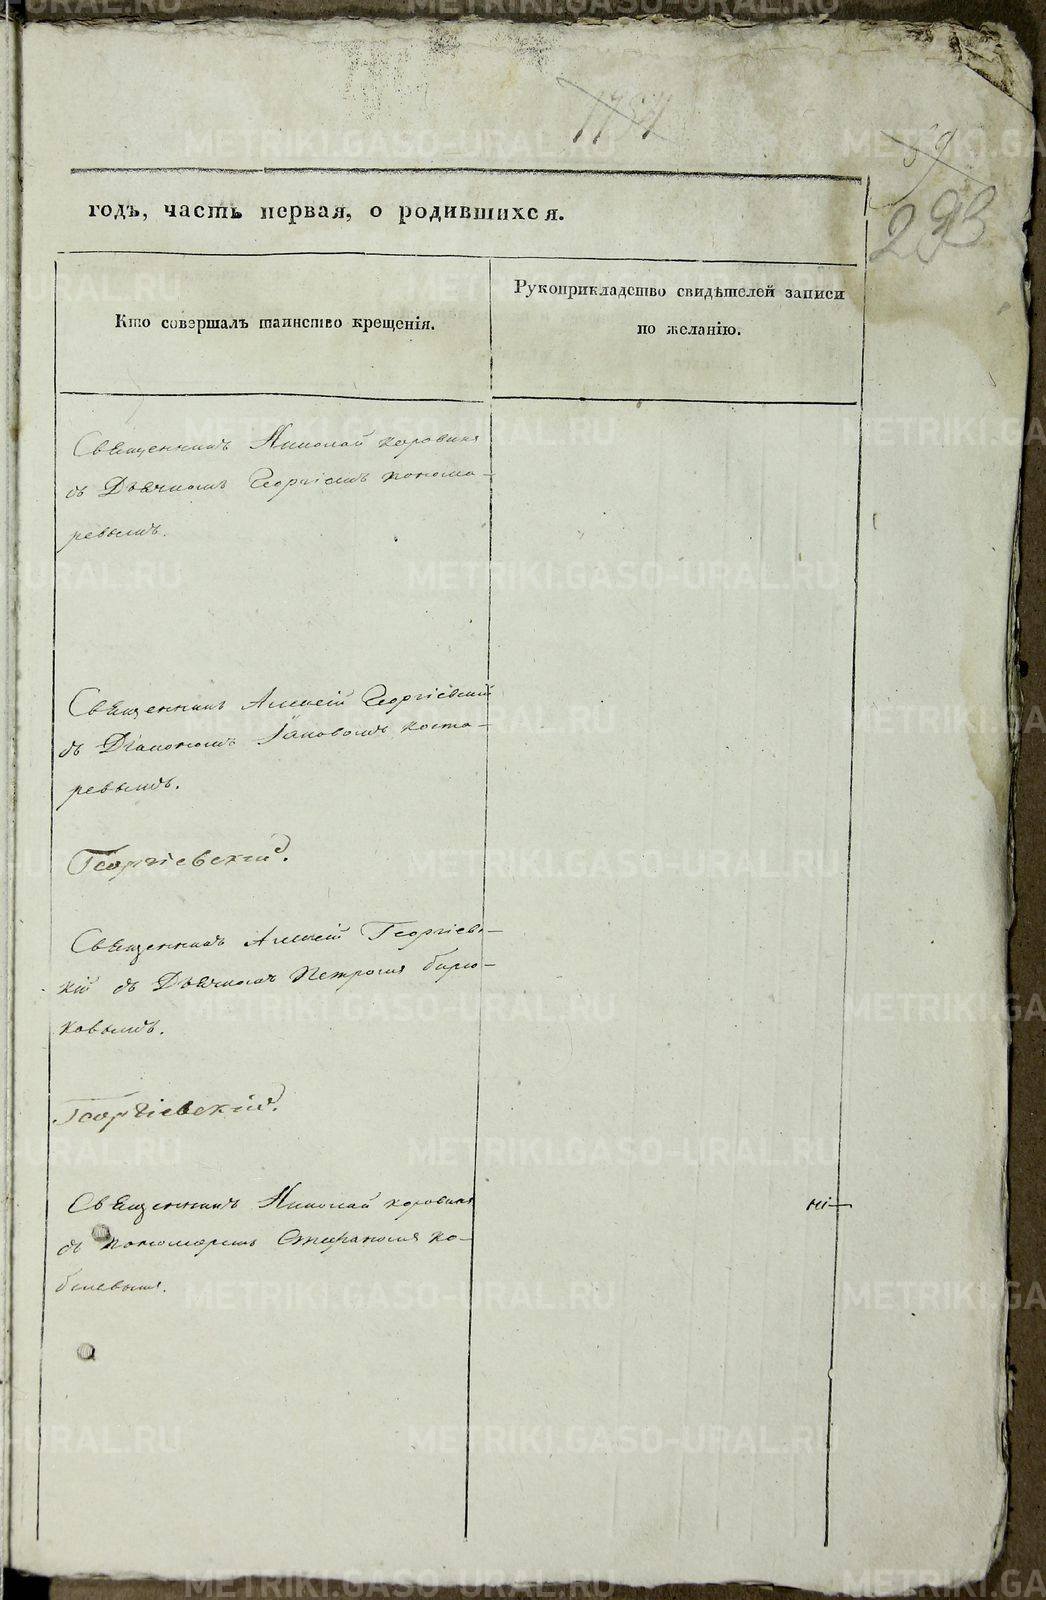 1757
39
293
годъ, часть первая, о родившихся.
Кто совершалъ таинство крещенія.
Рукоприкладство свидѣтелей записи
по желанію.
Священникъ Николай коровинъ
съ Дьячкомъ Георгіемъ понома-
ревымъ.
Священникъ Алексѣй Георгіевскій
съ Діакономъ Іаковомъ коста-
ревымъ.
Георгіевскій.
Священникъ Алексѣй Георгіевс-
кій съ Дьячкомъ Петромъ бирю-
ковымъ.
Георгіевскій.
Священникъ Николай коровинъ
съ пономаремъ Стефаномъ ко-
белевымъ.
METRIKI.GASO-URAL.RU